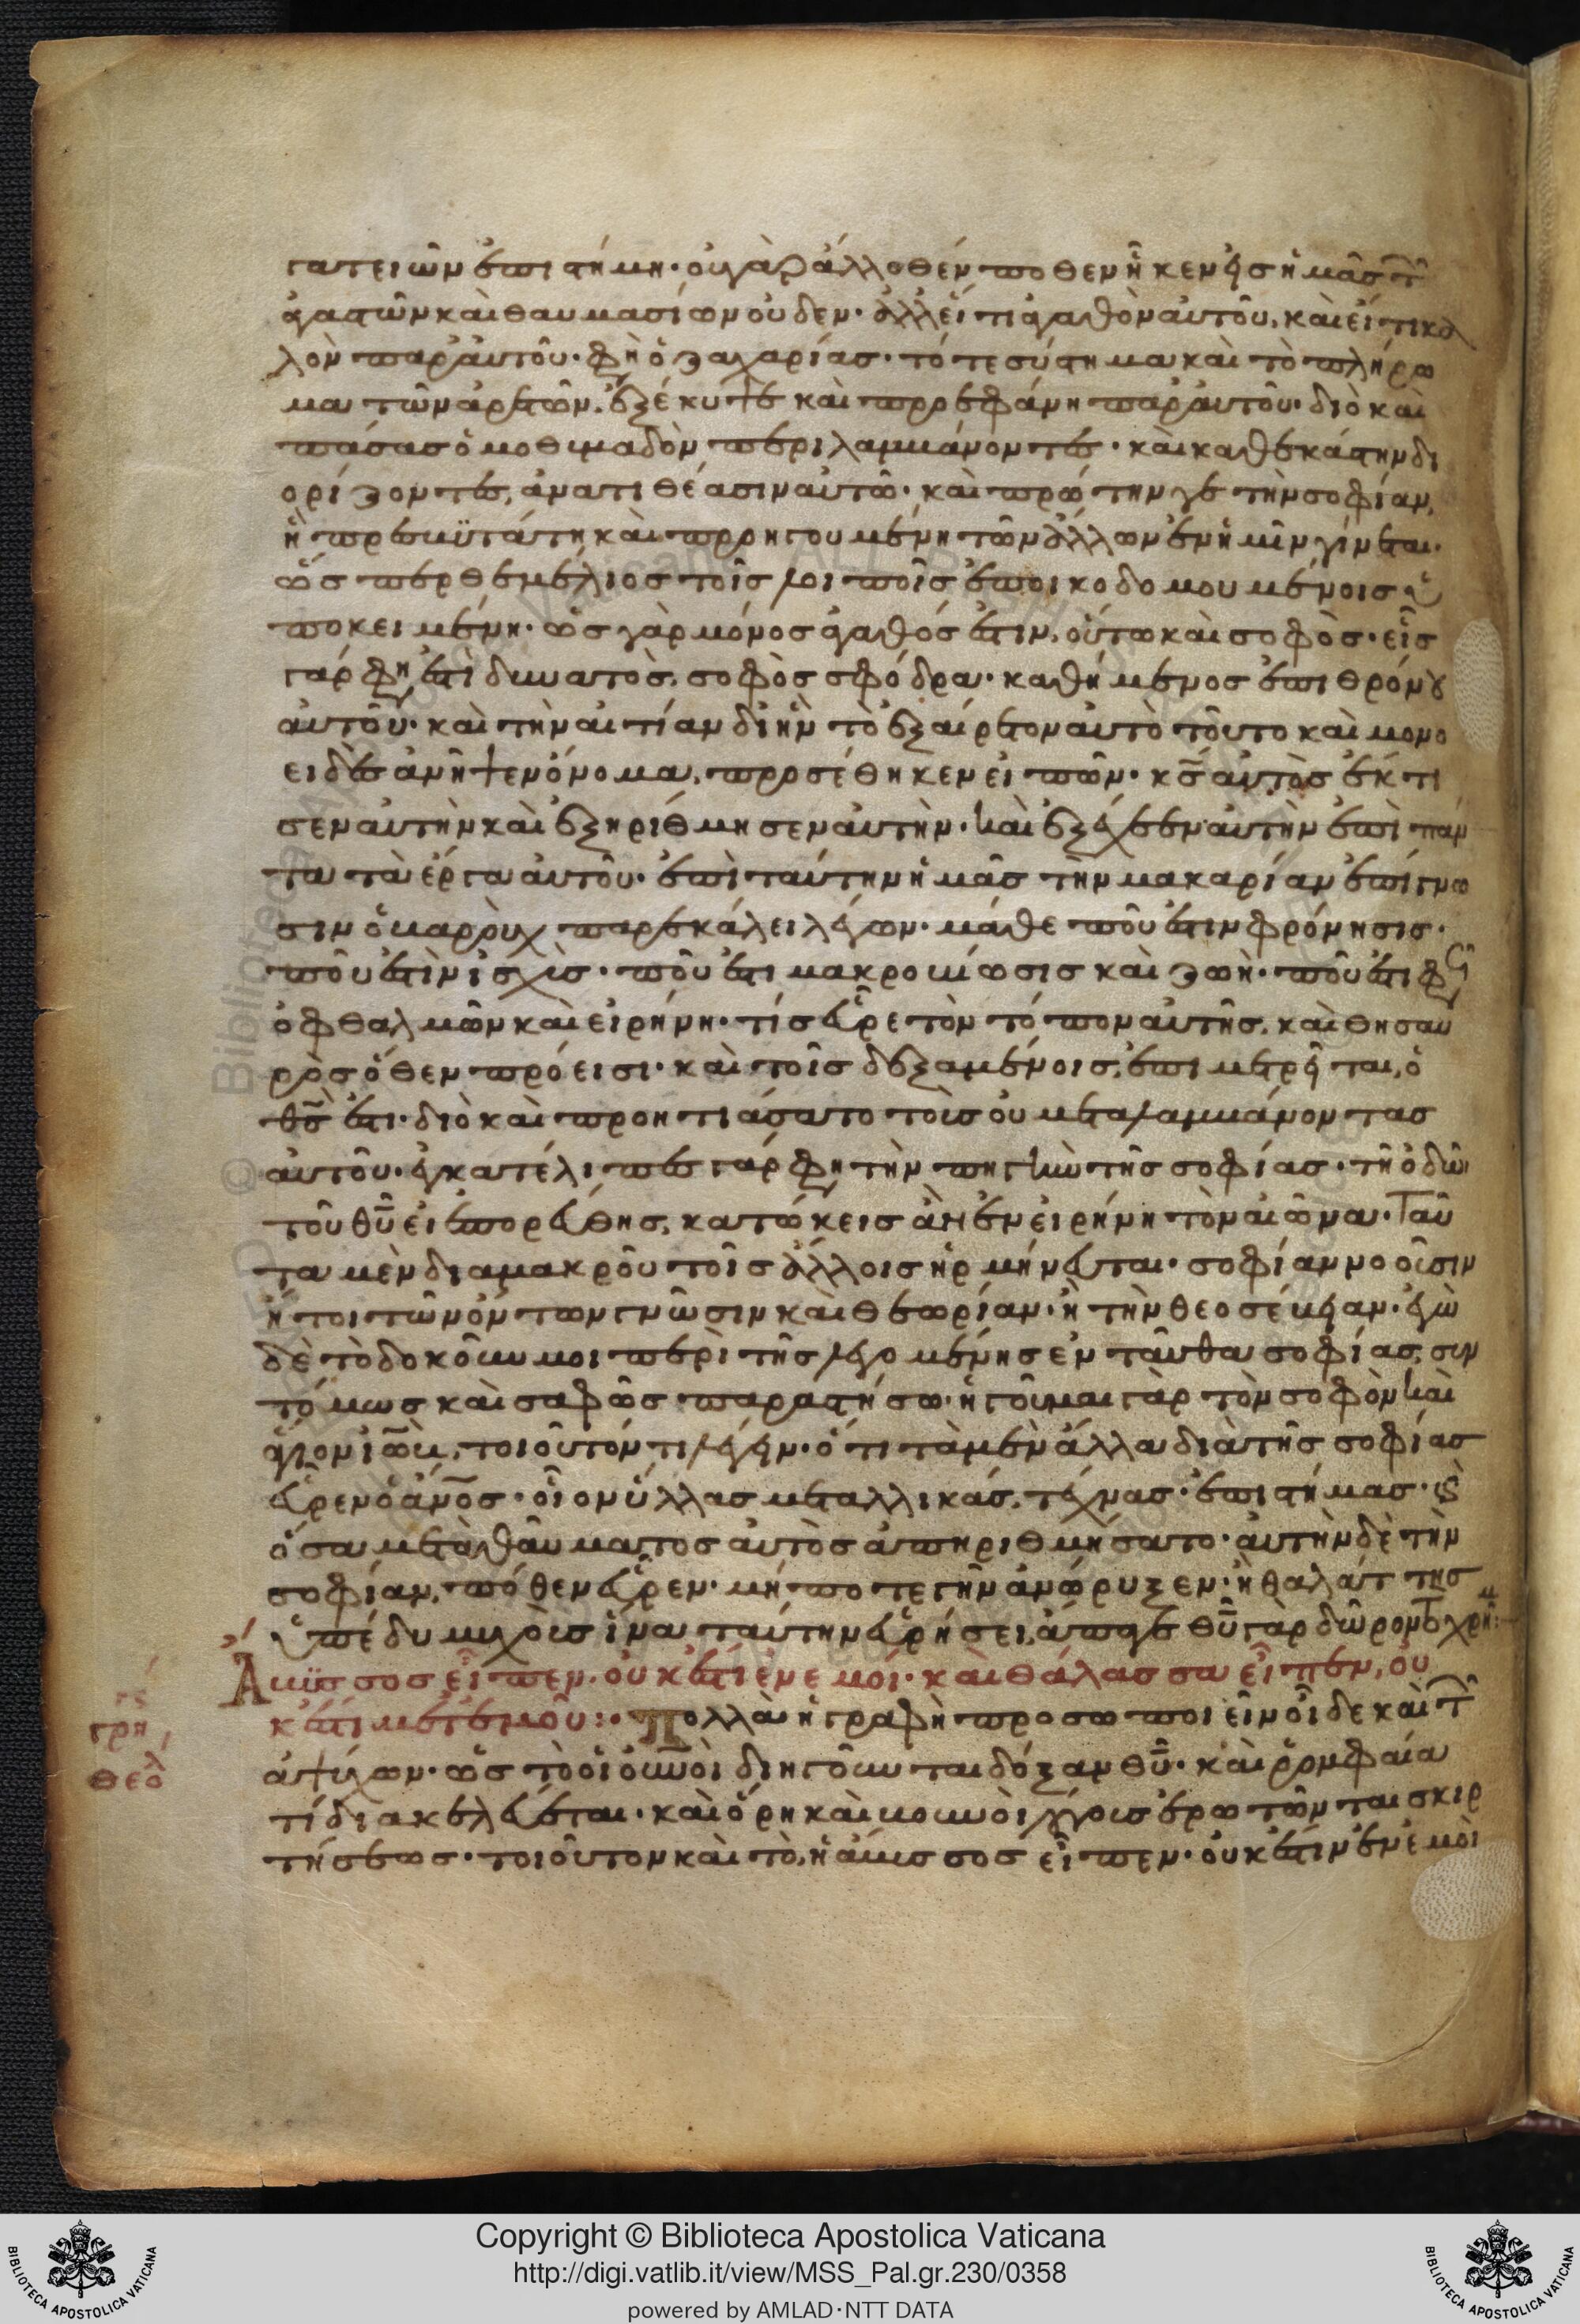 γατειῶν ἐπιστήμη· οὐ γὰρ ἄλλοθέν ποθεν ἧκεν εἰς ἡμᾶς τῶν
ἀγαστῶν καὶ θαυμασίων οὐδεν· ἀλλ εἴ τι ἀγαθὸν αὐτοῦ, καὶ εἴ τι κα
λὸν παρ αὐτοῦ· φη ὁ ζαχαρίας· τό τε σύστημα καὶ τὸ πλήρω
μα τῶν ἀρετῶν, ἐξέκυψε καὶ προεφάνη παρ αὐτοῦ· διὸ καὶ
πάσας ὁμοθυμαδὸν περιλαμβάνοντες· καὶ καθ εκάστην δι
ορίζοντες, ἀνατιθέασιν αὐτῶ· καὶ πρώτην γε τὴν σοφίαν,
ἡ πρεσβϋτάτη καὶ προηγουμένη τῶν ἄλλων ἐν ἡμῖν γίνεται·
ὥσπερ θεμέλιος τοῖς λοιποῖς ἐποικοδομουμένοις ὑ
ποκειμένη· ὡς γὰρ μόνος ἀγαθός ἐστιν, οὕτω καὶ σοφὸς· εἷς
γάρ φη ἐστὶ δυνατὸς, σοφὸς σφόδρα· καθήμενος ἐπι θρόνου
αὐτοῦ· καὶ τὴν αἰτίαν δι ἣν τὸ ἐξαίρετον αὐτὸ τοῦτο καὶ μονο
ειδὲς ἀνῆψεν ὄνομα, προσέθηκεν εἰπῶν· κς αὐτὸς ἔκτι
σεν αὐτὴν καὶ ἐξηρίθμησεν αὐτὴν· καὶ ἐξέχεεν αὐτὴν ἐπὶ πάν
τα τὰ ἔργα αὐτοῦ· ἐπὶ ταύτην ἡμᾶς τὴν μακαρίαν ἐπίγνω
σιν ὁ βαροὺχ παρεκάλει λέγων· μάθε ποῦ ἐστιν φρόνησις·
ποῦ ἐστὶν ἰσχὺς· ποῦ ἐστι μακροβίωσις καὶ ζωὴ· ποῦ ἐστι φῶς
ὀφθαλμῶν καὶ εἰρήνη· τίς εὗρε τὸν τόπον αὐτῆς, καὶ θησαυ
ρὸς ὅθεν πρόεισι· καὶ τοῖς δεξαμένοις, ἐπιμετρεῖται, ὁ
θς ἐστι· διὸ καὶ προητιάσατο τοὺς οὐ μεταλαμβάνοντας
αὐτοῦ· ἐγκατέλιπες γάρ φη τὴν πηγὴν τῆς σοφίας· τῆ ὁδῶ
τοῦ θυ εἰ ἐπορεύθης, κατώκεις ἂν ἐν εἰρήνη τὸν αἰῶνα· Ταῦ
τα μὲν δια μακροῦ τοῖς ἄλλοις ἡρμήνευται· σοφίαν νοοῦσιν
ἤτοι τῶν ὄντων γνῶσιν καὶ θεωρίαν· ἢ τὴν θεοσέβειαν· ἐγὼ
δὲ τὸ δοκοῦν μοι περὶ τῆς λεγομένης ἐνταῦθα σοφίας, συν
τόμως καὶ σαφῶς παραστήσω· ἡγοῦμαι γὰρ τὸν σοφὸν καὶ
ἅγιον ἰὼβ, τοιοῦτόν τι λέγειν· ὅτι τὰ μὲν ἄλλα διὰ τῆς σοφίας
εὗρεν ὁ ἄνος· οἷον ὕλλας μεταλλικάς, τέχνας· ἐπιστήμας· καὶ
ὅσα μετὰ θαύματος αὐτὸς ἀπηριθμήσατο· αὐτὴν δὲ τὴν
σοφίαν, πόθεν εὗρεν· μή ποτε γῆν ἀνώρυξεν· ἢ θαλάττης
ὑπέδυ μυχοὺς ἵνα ταύτην εὑρήσει, ἄπαγε θυ γὰρ δῶρον τὸ χρῆμα:
Ἄβϋσσος εἶπεν, οὐκ ἔστι ἐν ἐμοί· καὶ θάλασσα εἶπεν, οὐ
κ ἔστι μετ ἐμοῦ:· Πολλὰ ἡ γραφὴ προσωποιεῖν οἶδε καὶ τῶν
ἀψύχων· ὡς τὸ οἱ οὐνοὶ διηγοῦνται δόξαν θυ· καὶ ῥομφαία
τί διακελεύεται· καὶ ὄρη καὶ βουνοὶ λόγους ἐρωτῶνται σκιρ
τήσεως· τοιοῦτον καὶ τὸ, ἡ ἄβυσσος εἶπεν· οὐκ ἔστιν ἐν ἐμοὶ
γρη
θεολ
Copyright © Biblioteca Apostolica Vaticana
http://digi.vatlib.it/view/MSS_Pal.gr.230/0358
powered by AMLAD·NTT DATA